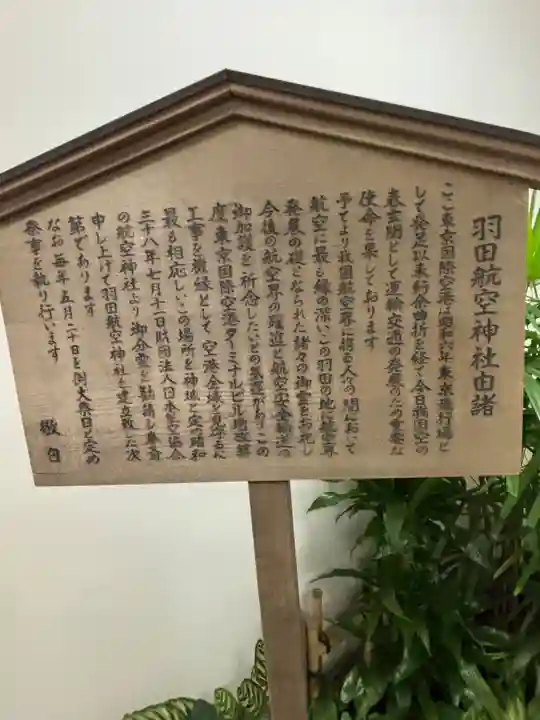 羽田航空神社由諸
ここ東京国際空港は昭和六年東京飛行場と
して発足以来紆余曲折を経て今日我国空の
表玄関として運輸交通の発展のため重要な
使命を果しております
予てより我国航空界に携る人々の間において
航空に最も縁の深いこの羽田の地に航空界
発展の礎となられた諸々の御霊をお祀し
今後の航空界の躍進と航空安全輸送の
御加護を祈念したいとの発意があり この
度 東京国際空港ターミナルビル増改築
工事を機縁として 空港全域を見降るに
最も相応しいこの場所を神域と定め昭和
三十八年七月十一日財団法人日本航空協会
の航空神社より御分霊を勧請し奉斎
申し上げて羽田航空神社を建立致した次
第であります
なお毎年五月二十日を例大祭日と定め
祭事を執り行います
敬白